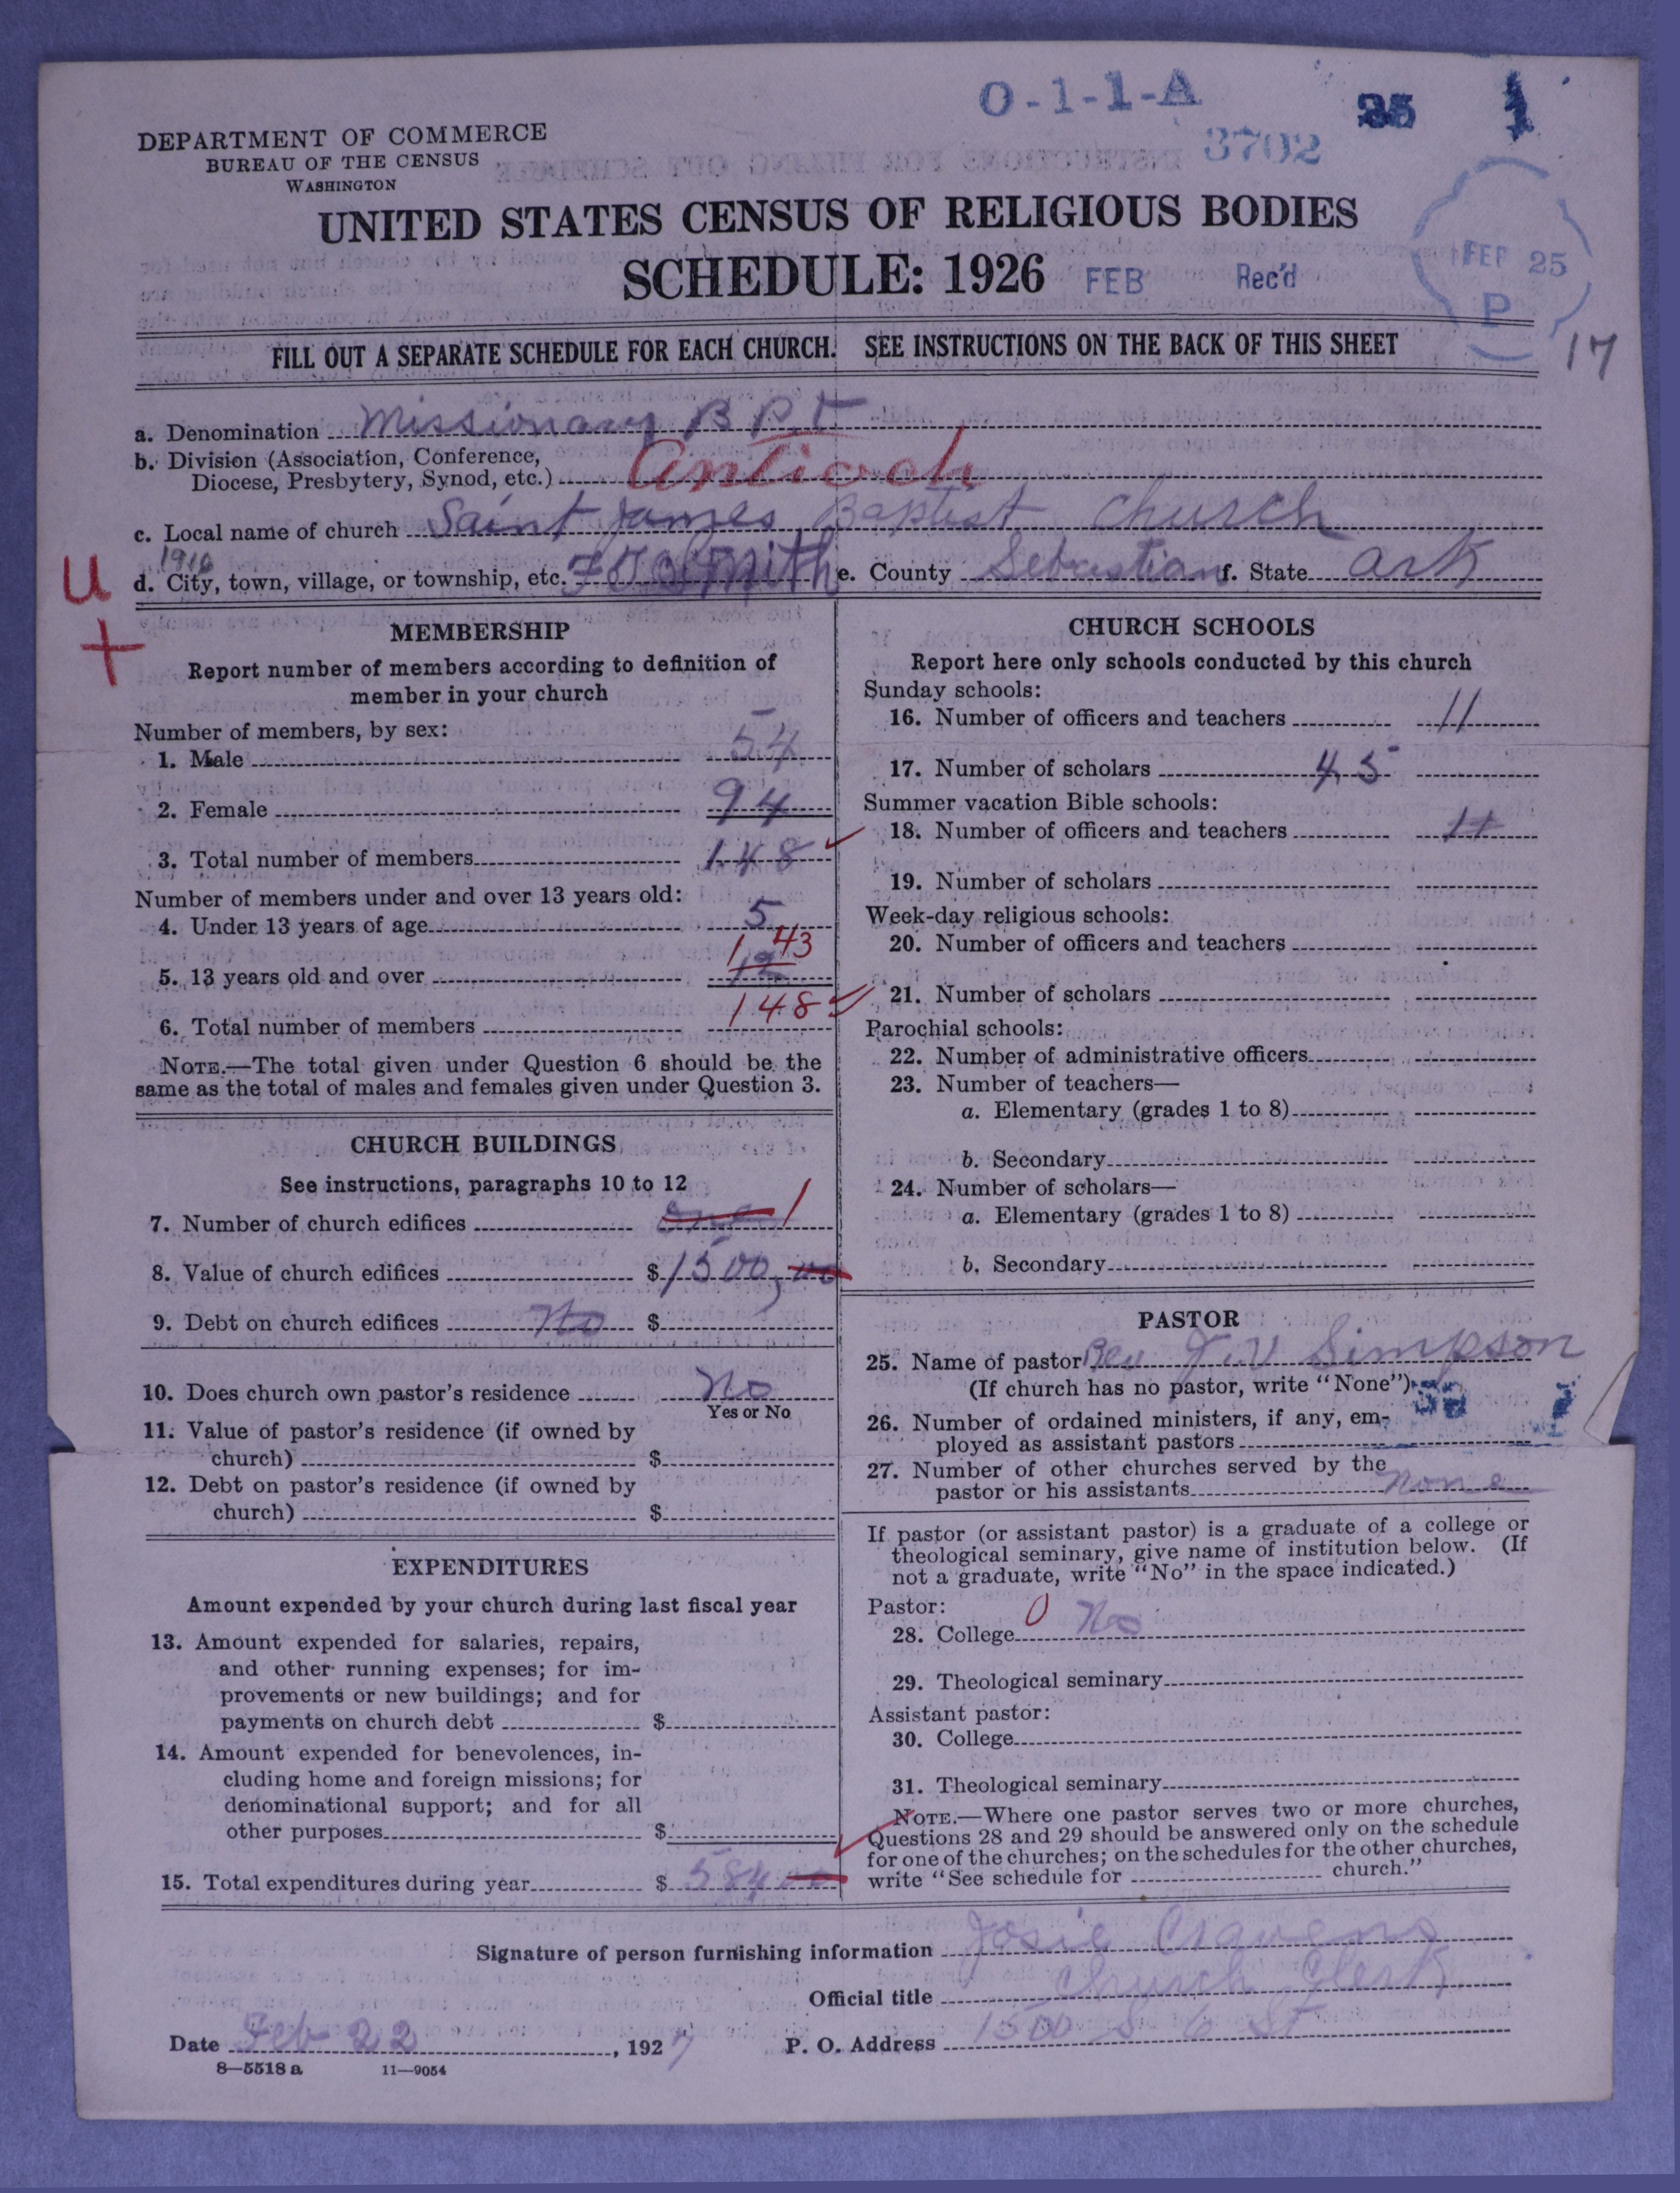 O-1-1-A
3702
DEPARTMENT OF COMMERCE
BUREAU OF THE CENSUS
WASHINGTON
UNITED STATES CENSUS OF RELIGIOUS BODIES
SCHEDULE: 1926 FEB Rec'd
FEB 25
P
17
FILL OUT A SEPARATE SCHEDULE FOR EACH CHURCH. SEE INSTRUCTIONS ON THE BACK OF THIS SHEET
a. Denomination Missionary B P.t
b. Division (Association, Conference,
Diocese, Presbytery, Synod, etc.) Antioch
c. Local name of church Saint James Baptist Church
1916
U
d. City, town, village, or township, etc. Ft Smith e. County Sebastian f. State Ark
+
MEMBERSHIP
Report number of members according to definition of
member in your church
Number of members, by sex:
1. Male 54
2. Female 94
3. Total number of members 148
Number of members under and over 13 years old:
4. Under 13 years of age 5
5. 13 years old and over 143
6. Total number of members 148
NOTE.—The total given under Question 6 should be the
same as the total of males and females given under Question 3.
CHURCH BUILDINGS
See instructions, paragraphs 10 to 12
7. Number of church edifices one 1
8. Value of church edifices $1500,00
9. Debt on church edifices No $
10. Does church own pastor's residence No
Yes or No
11. Value of pastor's residence (if owned by
church) $
12. Debt on pastor's residence (if owned by
church) $
EXPENDITURES
Amount expended by your church during last fiscal year
13. Amount expended for salaries, repairs,
and other running expenses; for im-
provements or new buildings; and for
payments on church debt $
14. Amount expended for benevolences, in-
cluding home and foreign missions; for
denominational support; and for all
other purposes $
15. Total expenditures during year $ 584 00
CHURCH SCHOOLS
Report here only schools conducted by this church
Sunday schools:
16. Number of officers and teachers 11
17. Number of scholars 45
Summer vacation Bible schools:
18. Number of officers and teachers 11
19. Number of scholars
Week-day religious schools:
20. Number of officers and teachers
21. Number of scholars
Parochial schools:
22. Number of administrative officers
23. Number of teachers—
a. Elementary (grades 1 to 8)
b. Secondary
24. Number of scholars—
a. Elementary (grades 1 to 8)
b. Secondary
PASTOR
25. Name of pastor Rev J. V Simpson
(If church has no pastor, write "None")
26. Number of ordained ministers, if any, em-
ployed as assistant pastors
27. Number of other churches served by the
pastor or his assistants None
If pastor (or assistant pastor) is a graduate of a college or
theological seminary, give name of institution below. (If
not a graduate, write "No" in the space indicated.)
Pastor:
28. College 0 No
29. Theological seminary
Assistant pastor:
30. College
31. Theological seminary
NOTE.—Where one pastor serves two or more churches,
Questions 28 and 29 should be answered only on the schedule
for one of the churches; on the schedules for the other churches,
write "See schedule for church."
Signature of person furnishing information Josie Cravens
Official title Church Clerk
Date Feb 22, 1927 P. O. Address 1500 S 6 St
8—5518 a 11—9054